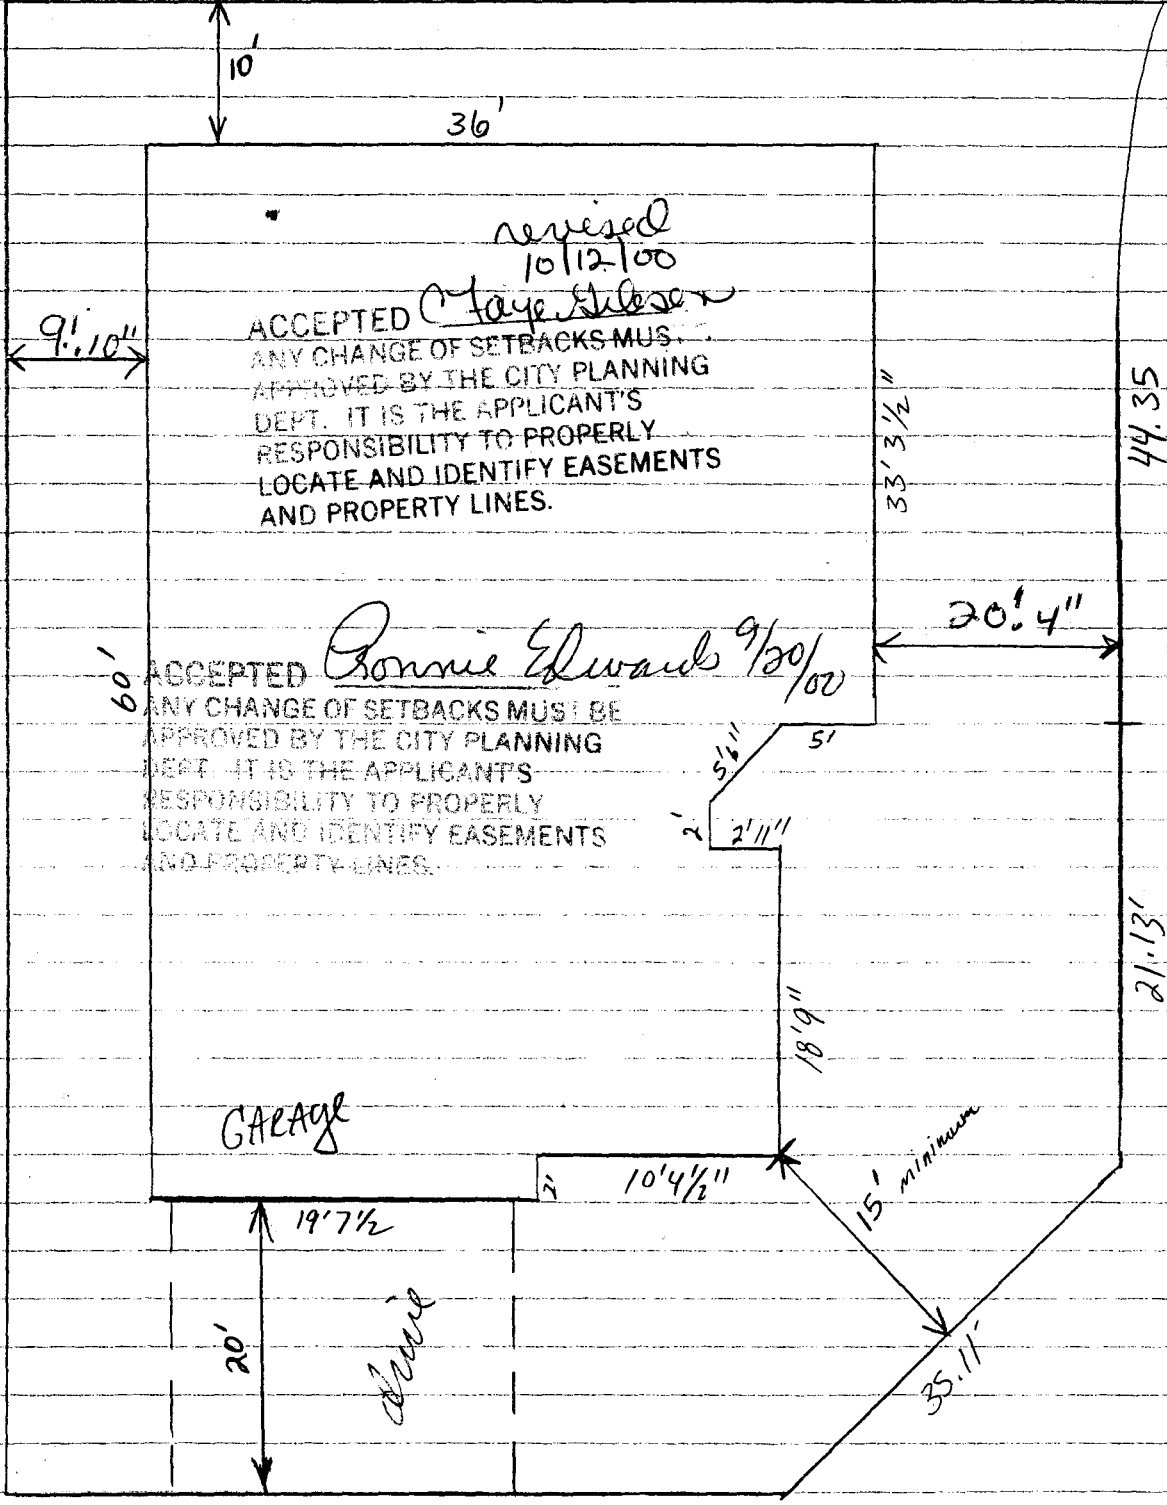 10'
36'
revised
10/12/00
ACCEPTED C Faye Gibson
ANY CHANGE OF SETBACKS MUS
APPROVED BY THE CITY PLANNING
DEPT. IT IS THE APPLICANT'S
RESPONSIBILITY TO PROPERLY
LOCATE AND IDENTIFY EASEMENTS
AND PROPERTY LINES.
9'.10"
33' 3 1/2"
44.35
20'.4"
60'
ACCEPTED Ronnie Edwards 9/20/00
ANY CHANGE OF SETBACKS MUST BE
APPROVED BY THE CITY PLANNING
DEPT. IT IS THE APPLICANT'S
RESPONSIBILITY TO PROPERLY
LOCATE AND IDENTIFY EASEMENTS
AND PROPERTY LINES.
5'
5'6"
2'
2'11"
21.13'
18'9"
GARAge
2'
10'4 1/2"
15' minimum
19'7 1/2
20'
drive
35.11'